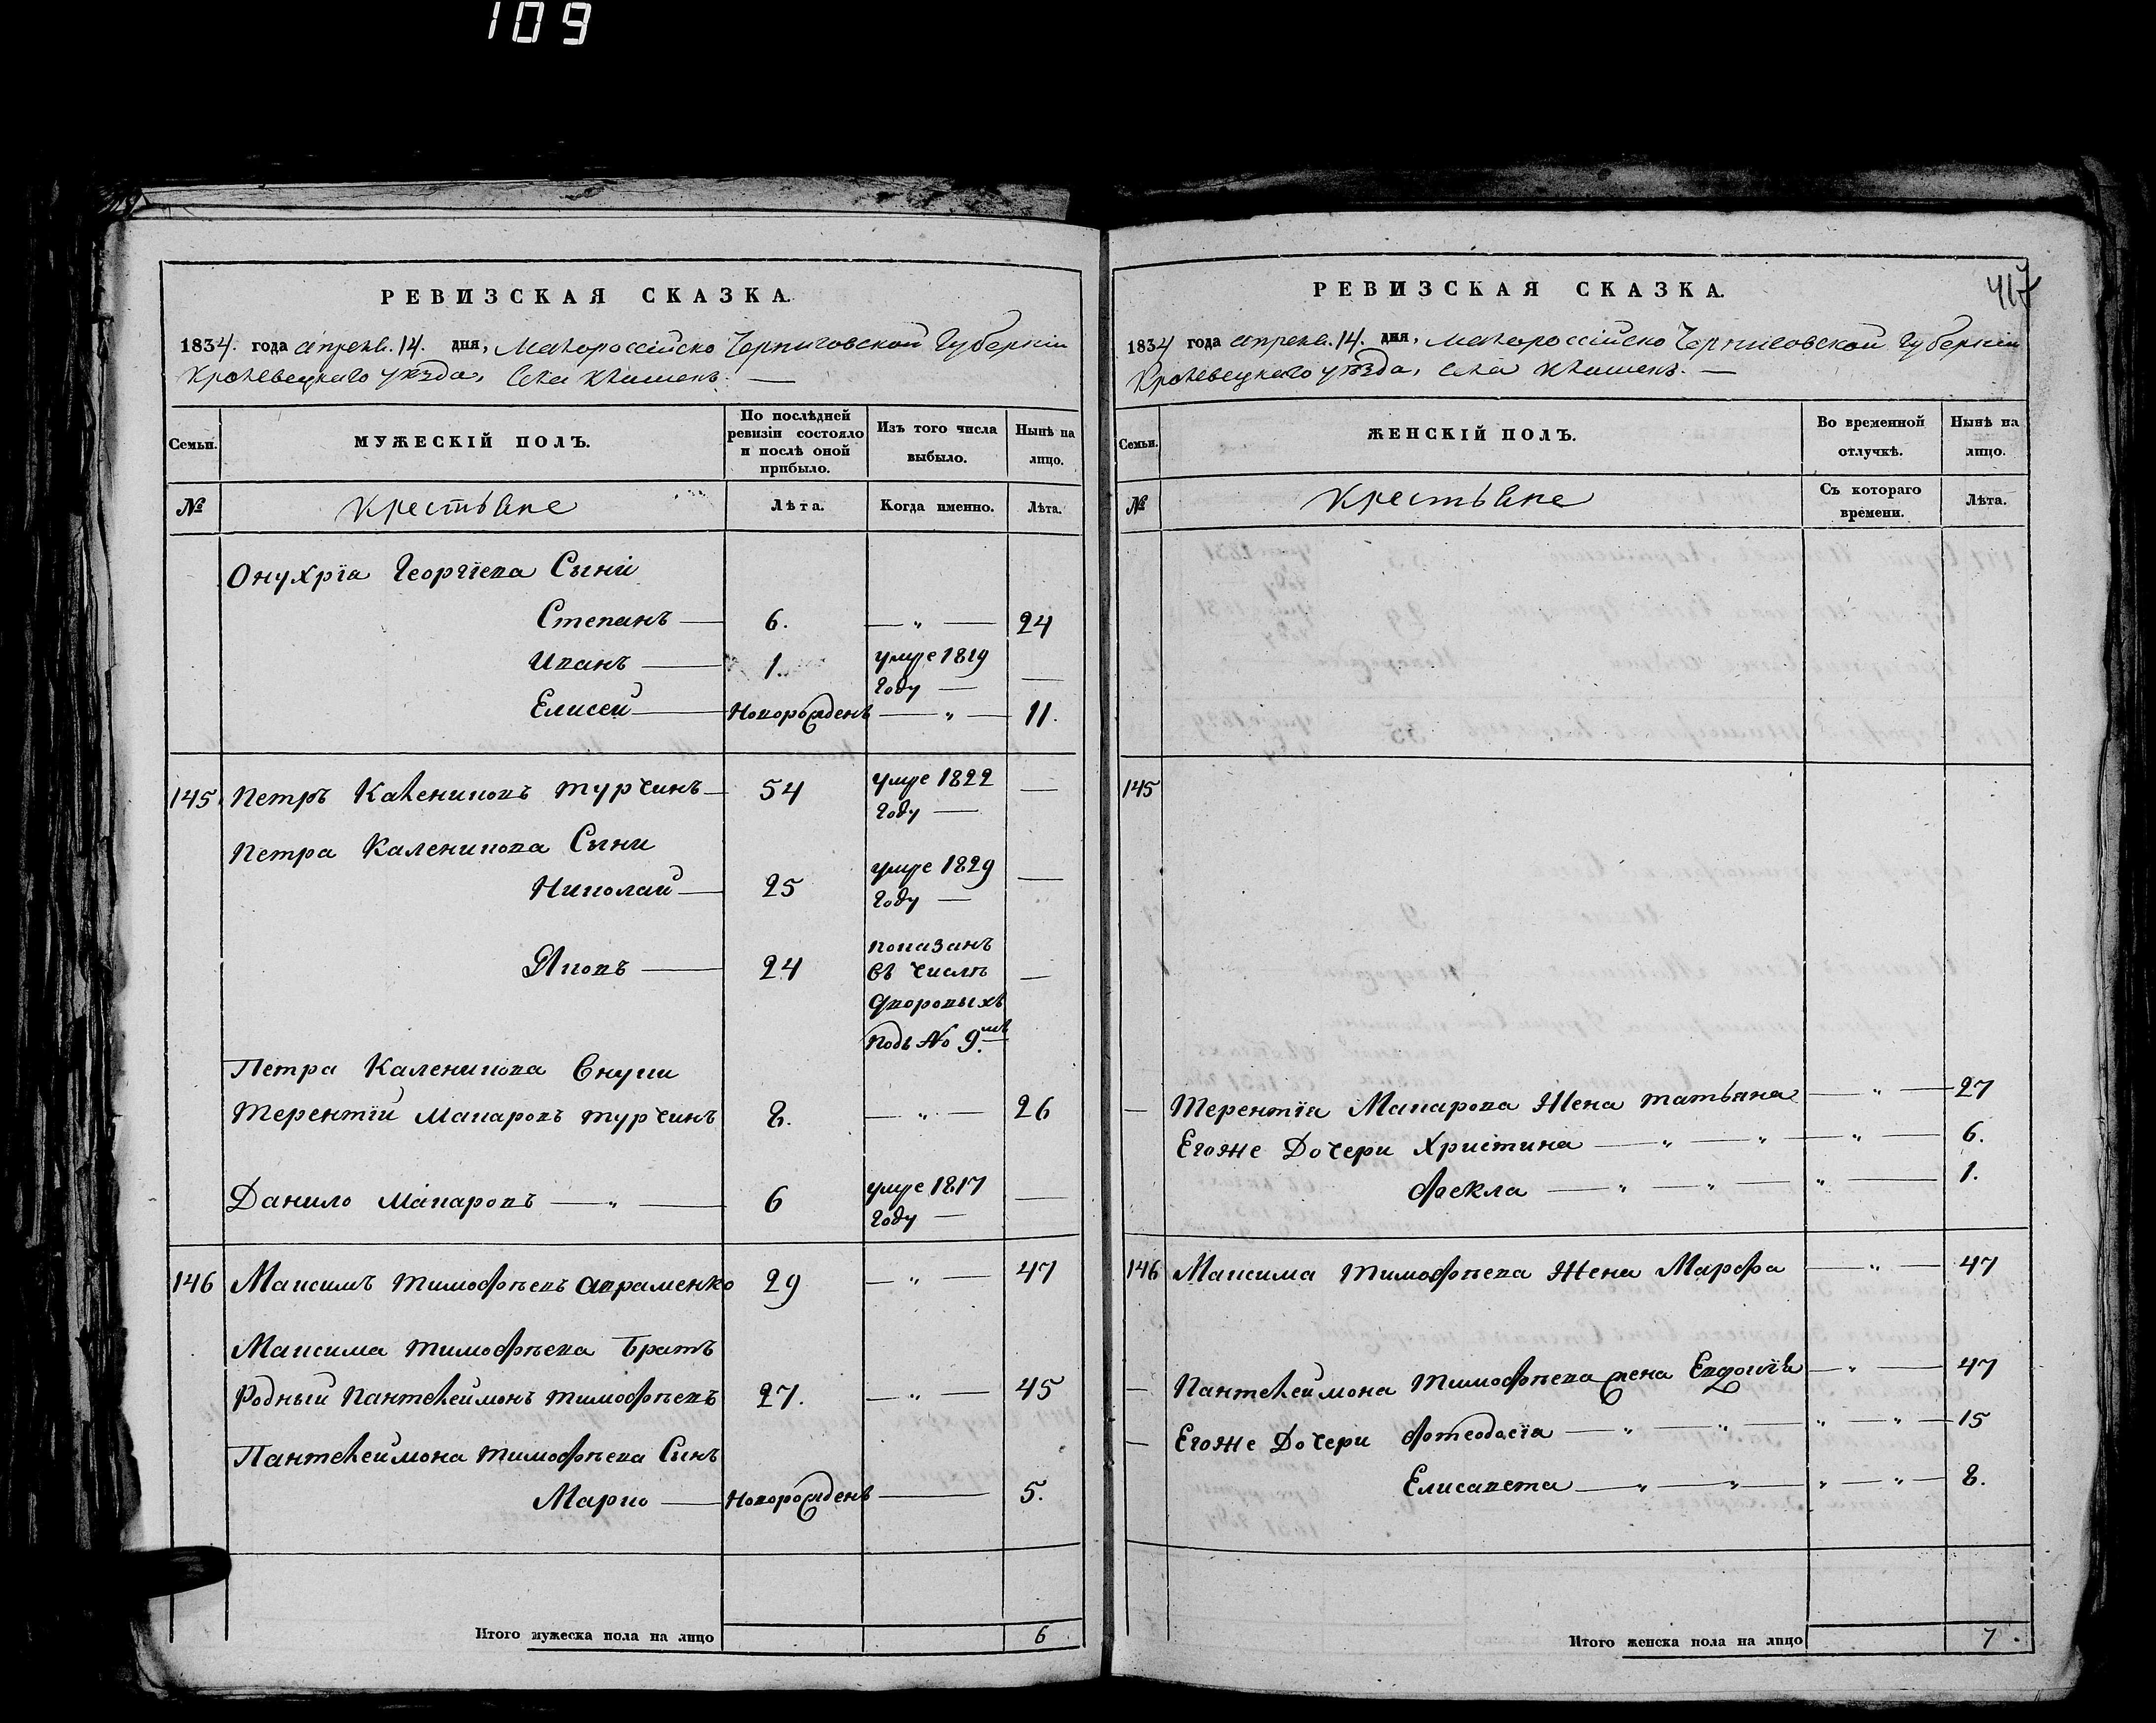 109
РЕВИЗСКАЯ СКАЗКА.
1834. года апрел. 14. дня, Малороссійско Черниговской Губерніи
Кролевецкаго уѣзда, Села Клишекъ. —
Семьи.
МУЖЕСКІЙ ПОЛЪ.
По послѣдней ревизіи состояло и послѣ оной прибыло.
Изъ того числа выбыло.
Нынѣ на лицо.
№
Крестьяне
Лѣта.
Когда именно.
Лѣта.
Онухріа Георгіева Сыни
Степанъ — 6. — „ — 24
Иванъ — 1. умре 1819 году — —
Елисей — Новорожденъ — „ — 11.
145 Петръ Калениковъ Турчинъ — 54 умре 1822 году — —
Петра Каленикова Сыни
Николай — 25 умре 1829 году — —
Яковъ — 24 показанъ въ числѣ дворовыхъ подъ № 9мъ. —
Петра Каленикова Внуки
Терентій Макаровъ Турчинъ 8. — „ — 26
Данило Макаровъ — „ — 6 умре 1817 году — —
146 Максимъ Тимофѣевъ Авраменко 29 — „ — 47
Максима Тимофѣева Братъ
Родный Пантелеймонъ Тимофѣевъ 27. — „ — 45
Пантелеймона Тимофѣева Сынъ
Марко — Новорожденъ — 5.
Итого мужеска пола на лицо 6
417
РЕВИЗСКАЯ СКАЗКА.
1834 года апрел. 14. дня, Малороссійско Черниговской Губерніи
Кролевецкаго уѣзда, Села Клишекъ. —
Семьи.
ЖЕНСКІЙ ПОЛЪ.
Во временной отлучкѣ.
Нынѣ на лицо.
№
Крестьяне
Съ котораго времени.
Лѣта.
145
— Терентіа Макарова Жена Татьяна — „ — 27
Егоже Дочери Христина — „ — „ — „ — 6.
Фекла — „ — „ — „ — 1.
146 Максима Тимофѣева Жена Марфа — „ — 47
— Пантелеймона Тимофѣева жена Евдокіа — „ — 47
— Егоже Дочери Фтеодосіа — „ — „ — „ — „ — 15
Елисавета — „ — „ — „ — „ — 8.
Итого женска пола на лицо 7.